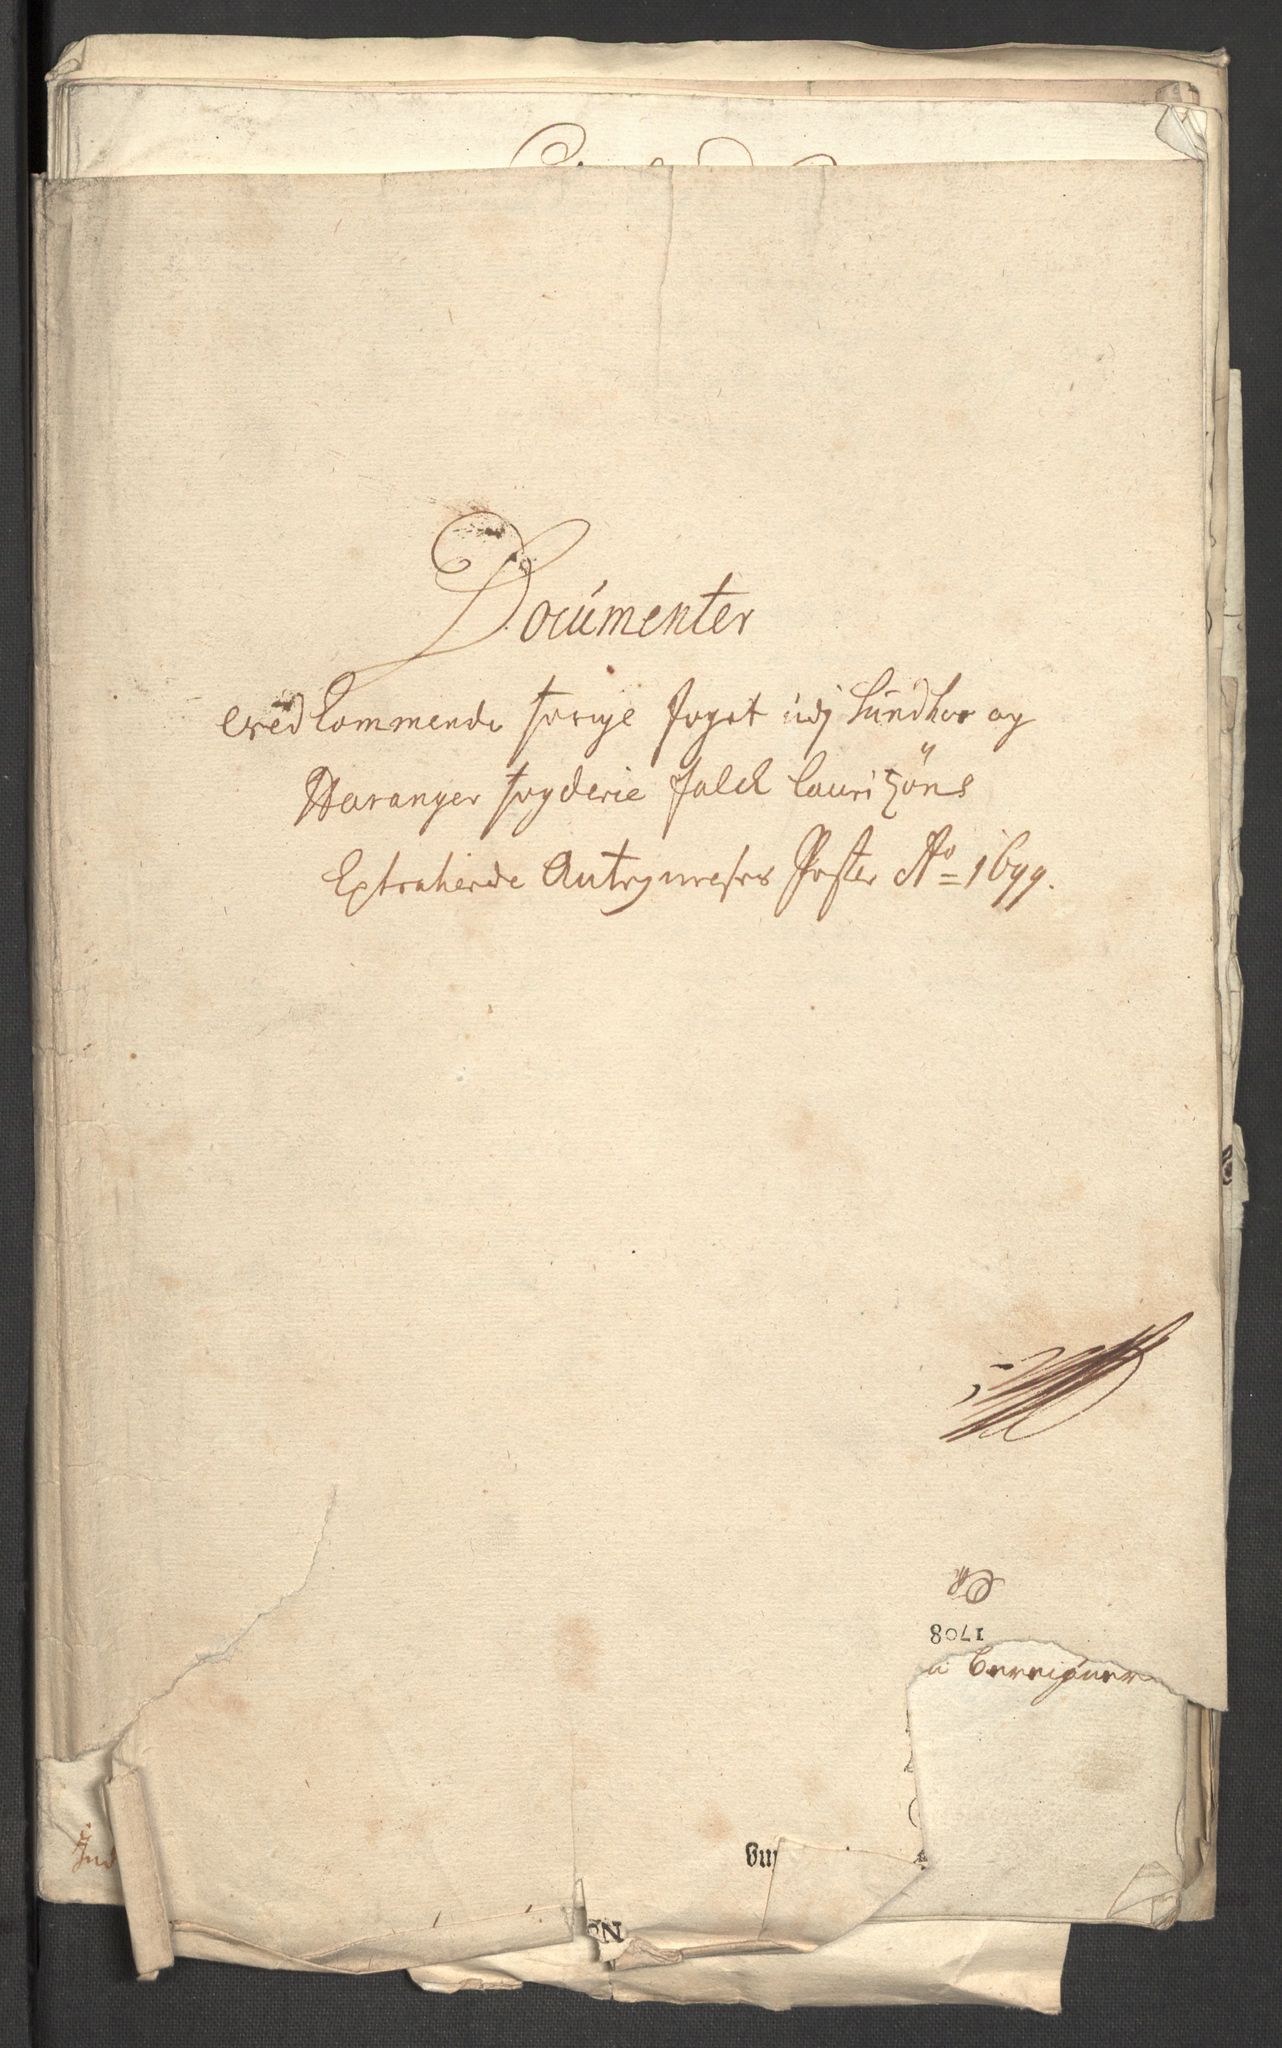 Documenter
wed kommende forige foget udj Sundhor og
Haranger fogderie Falck lauritzöns
Extraherde Antegnelses Poster Ao= 1699.
1708